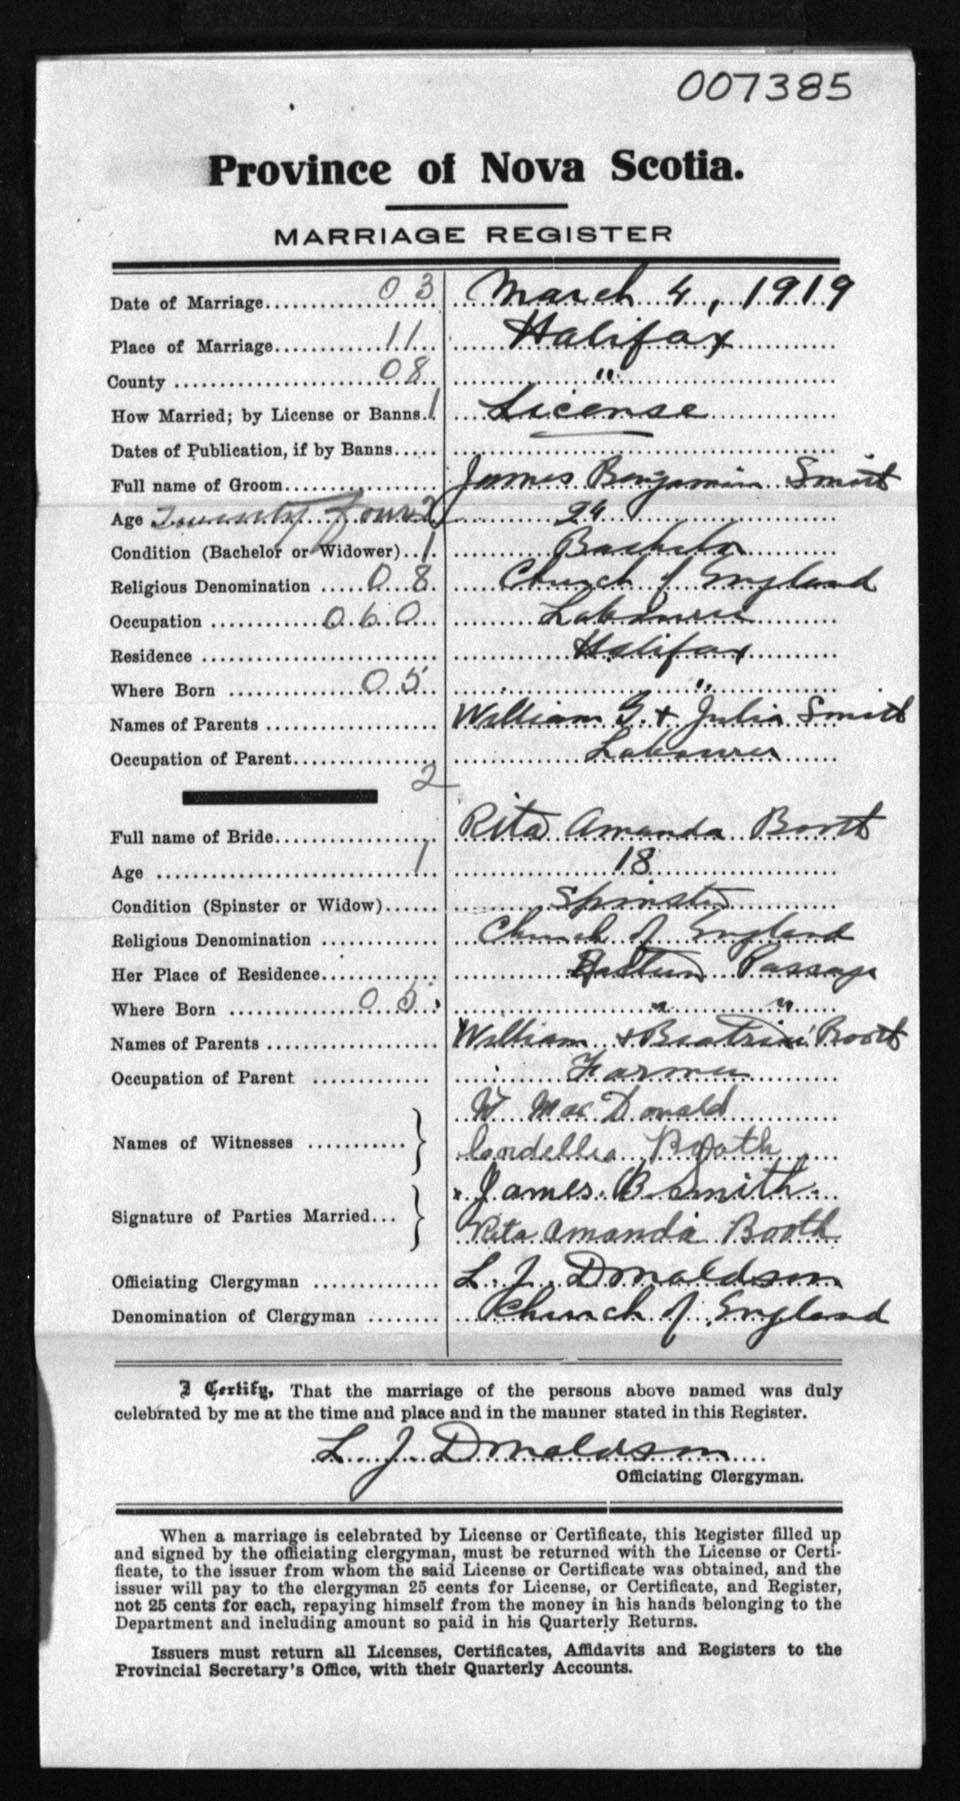 007385
Province of Nova Scotia.
MARRIAGE REGISTER
Date of Marriage 03 March 4, 1919
Place of Marriage 11 Halifax
County 08 "
How Married; by License or Banns. 1 License
Dates of Publication, if by Banns
Full name of Groom James Benjamin Smith
Age Twenty four 2 24
Condition (Bachelor or Widower) 1 Bachelor
Religious Denomination 08 Church of England
Occupation 060 Labourer
Residence Halifax
Where Born 05 "
Names of Parents William G. + Julia Smith
Occupation of Parent Labourer
2
Full name of Bride Rita Amanda Booth
Age 1 18
Condition (Spinster or Widow) Spinster
Religious Denomination Church of England
Her Place of Residence Eastern Passage
Where Born 05 " "
Names of Parents William + Beatrice Booth
Occupation of Parent Farmer
Names of Witnesses W MacDonald
Booth
Signature of Parties Married James B Smith
Rita Amanda Booth
Officiating Clergyman L. J. Donaldson
Denomination of Clergyman Church of England
I Certify, That the marriage of the persons above named was duly
celebrated by me at the time and place and in the manner stated in this Register.
L. J. Donaldson
Officiating Clergyman.
When a marriage is celebrated by License or Certificate, this Register filled up
and signed by the officiating clergyman, must be returned with the License or Certi-
ficate, to the issuer from whom the said License or Certificate was obtained, and the
issuer will pay to the clergyman 25 cents for License, or Certificate, and Register,
not 25 cents for each, repaying himself from the money in his hands belonging to the
Department and including amount so paid in his Quarterly Returns.
Issuers must return all Licenses, Certificates, Affidavits and Registers to the
Provincial Secretary's Office, with their Quarterly Accounts.